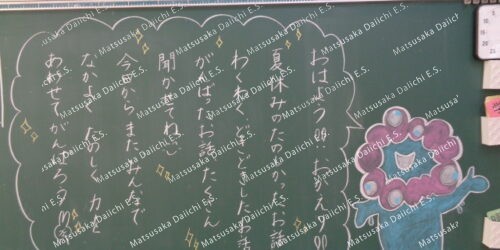 おはよう!! おかえり!!
夏休みのたのしかったお話
わくわく どきどきしたお話
がんばったお話 たくさん
聞かせてね。
今日から また、みんなで
なかよく たのしく 力を
あわせて がんばろうね
Matsusaka Daiichi E.S.